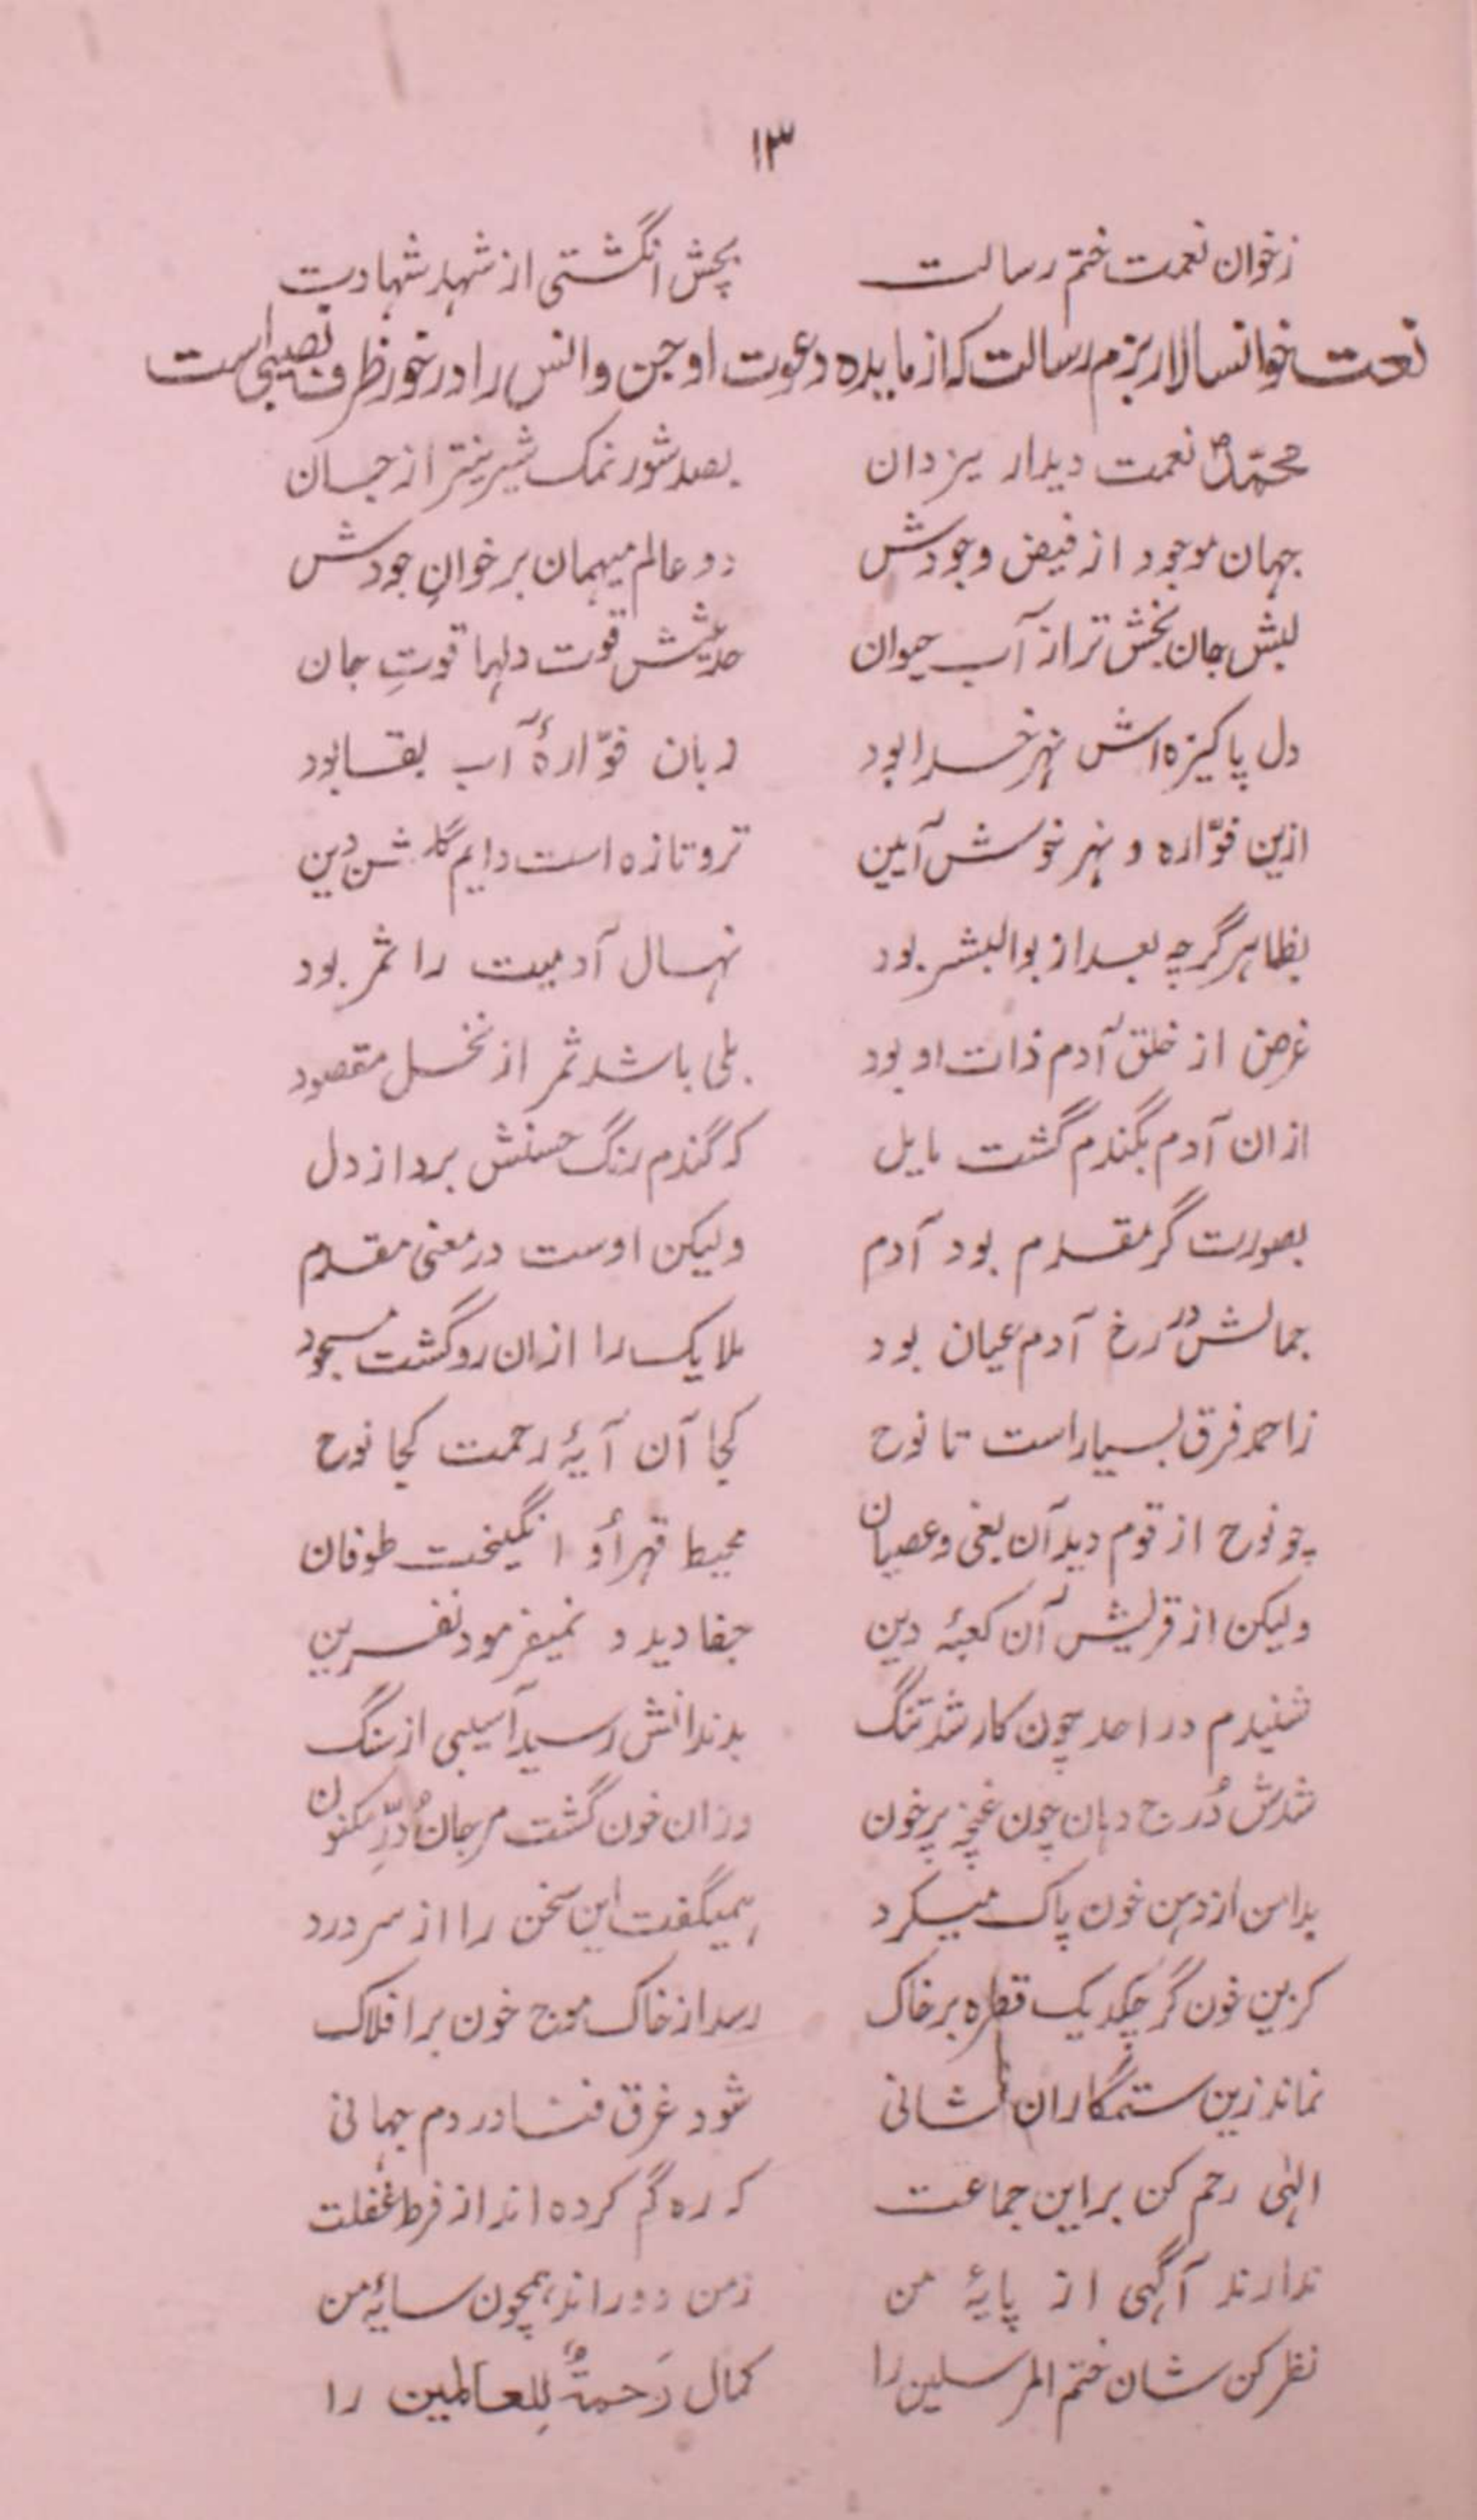 ١٣
زخوان نعمت ختم رسالت بچش انگشتی از شهد شهادت
نعت خوانسالار بزم رسالت که از مایده دعوت او جن و انس را در خور ظرف نصیبی است
محمّدؐ نعمت دیدار یزدان بصد شور نمک شیرینتر از جان
جهان موجود از فیض وجودش دو عالم میهمان بر خوانِ جودش
لبش جان بخش تر از آب حیوان حدیثش قوت دلها قوتِ جان
دل پاکیزه اش نهر خدا بود زبان فوّارهٔ آب بقا بود
ازین فوّاره و نهر خوش آیین تر و تازه است دایم گلشن دین
بظاهر گرچه بعد از بوالبشر بود نهال آدمیت را ثمر بود
غرض از خلق آدم ذات او بود بلی باشد ثمر از نخل مقصود
ازان آدم بگندم گشت مایل که گندم رنگ حسنش برد از دل
بصورت گر مقدم بود آدم ولیکن اوست در معنی مقدم
جمالش در رخ آدم عیان بود ملایک را ازان رو گشت مسجود
ز احمد فرق بسیار است تا نوح کجا آن آیهٔ رحمت کجا نوح
چو نوح از قوم دید آن بغی و عصیان محیط قهر أو انگیخت طوفان
ولیکن از قریش آن کعبهٔ دین جفا دید و نمیفرمود نفرین
شنیدم در احد چون کار شد تنگ بدندانش رسید آسیبی از سنگ
شدش دُرج دهان چون غنچه پرخون وزان خون گشت مرجان دُرِّ مکنون
بدامن از دهن خون پاک میکرد همیگفت این سخن را از سر درد
کزین خون گر چکد یک قطره بر خاک رسد از خاک موج خون بر افلاک
نماند زین ستمگاران نشانی شود غرق فنا در دم جهانی
الٰهی رحم کن بر این جماعت که ره گم کرده اند از فرط غفلت
ندارند آگهی از پایهٔ من زمن دوراند همچون سایهٔ من
نظر کن شان ختم المرسلین را کمال رَحمةٌ لِلعالمین را